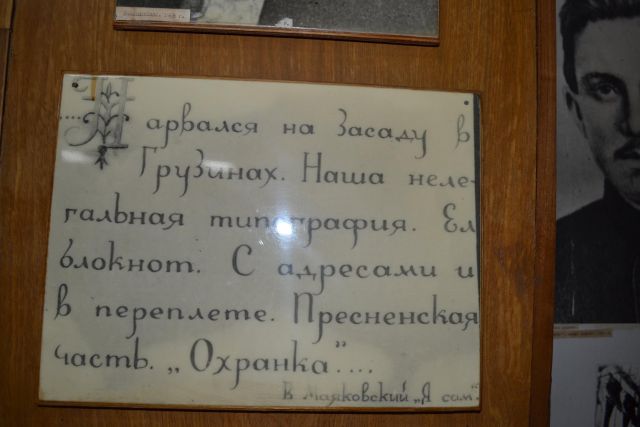 Нарвался на Засаду в
Грузинах. Наша неле-
гальная типография. Ел
блокнот. С адресами и
в переплете. Пресненская
часть. „Охранка"....
В Маяковский „Я сам".